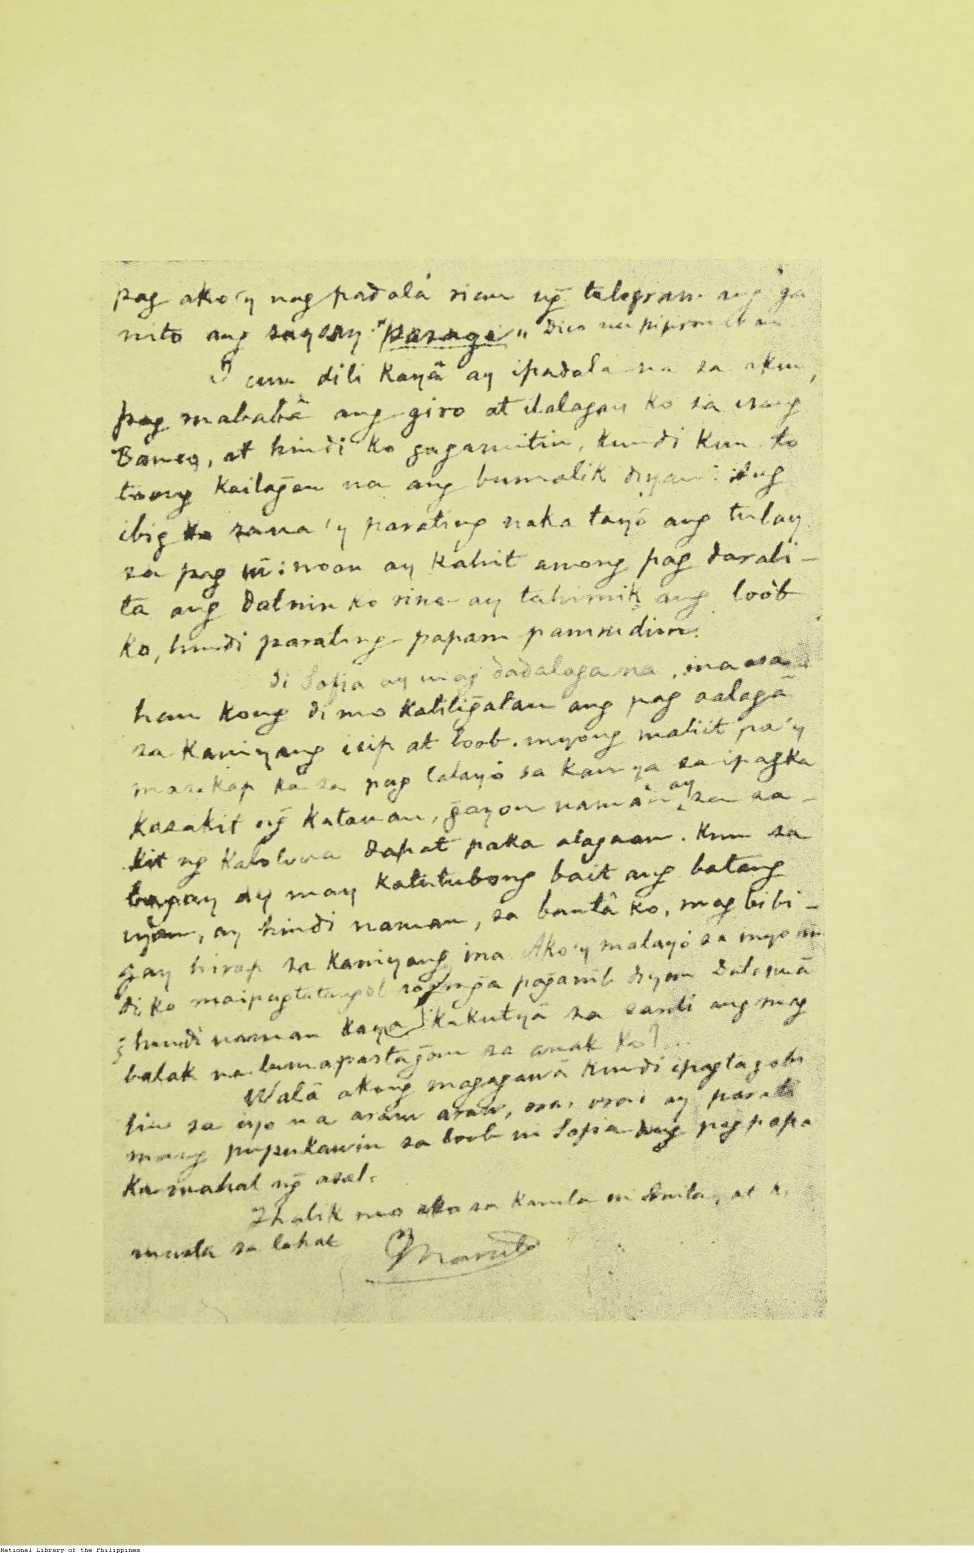 pag ako'y nag padalá rian ng̃ telegram ang ga
nito ang sagsay "Pasage"
O cun dili kayâ ay ipadala na sa akin,
pag mababâ ang giro at ilalagay ko sa isang
Banco, at hindi ko gagamitin, kundi kun to
toong kailag̃an na ang bumalik diyan: Ang
ibig ko sana'y parating naka tayô ang tulay
sa pag noon ay kahit anong pag darali-
ta ang datnin ko rine ay tahimik ang loòb
ko, hindi parating papam
Si Sofia ay mag dadalaga na, ina asa
han kong di mo kaliligătan ang pag aalagâ
sa kaniyang isip at loob. myong maliit pa'y
masikap ka sa pag lalayô sa kaniya sa ipagka
kasakit ng̃ katawan, g̃ayon naman ay sa sa-
kit ng kalolowa dapat paka alagaan. Kun sa
bagay ay may katutubong bait ang batang
iyan, ay hindi naman, sa bantâ ko, mag bibi-
gay hirap sa kaniyang ina. Ako'y malayô sa inyo at
di ko maipagtatangol sa mg̃a pag̃anib diyan
¿hindi naman kaya kakutyâ sa santi ang mag
balak na lumapastag̃an sa anak ko?...
Walâ akong magagawâ kundi ipagtagobi
lin sa iyo na araw araw, oras oras ay parati
mong pupukawin sa loob ni Sopia ang pagpapa
ka mahal ng̃ asal.
Ihalik mo ako sa kanila ni at k.
musta sa lahat